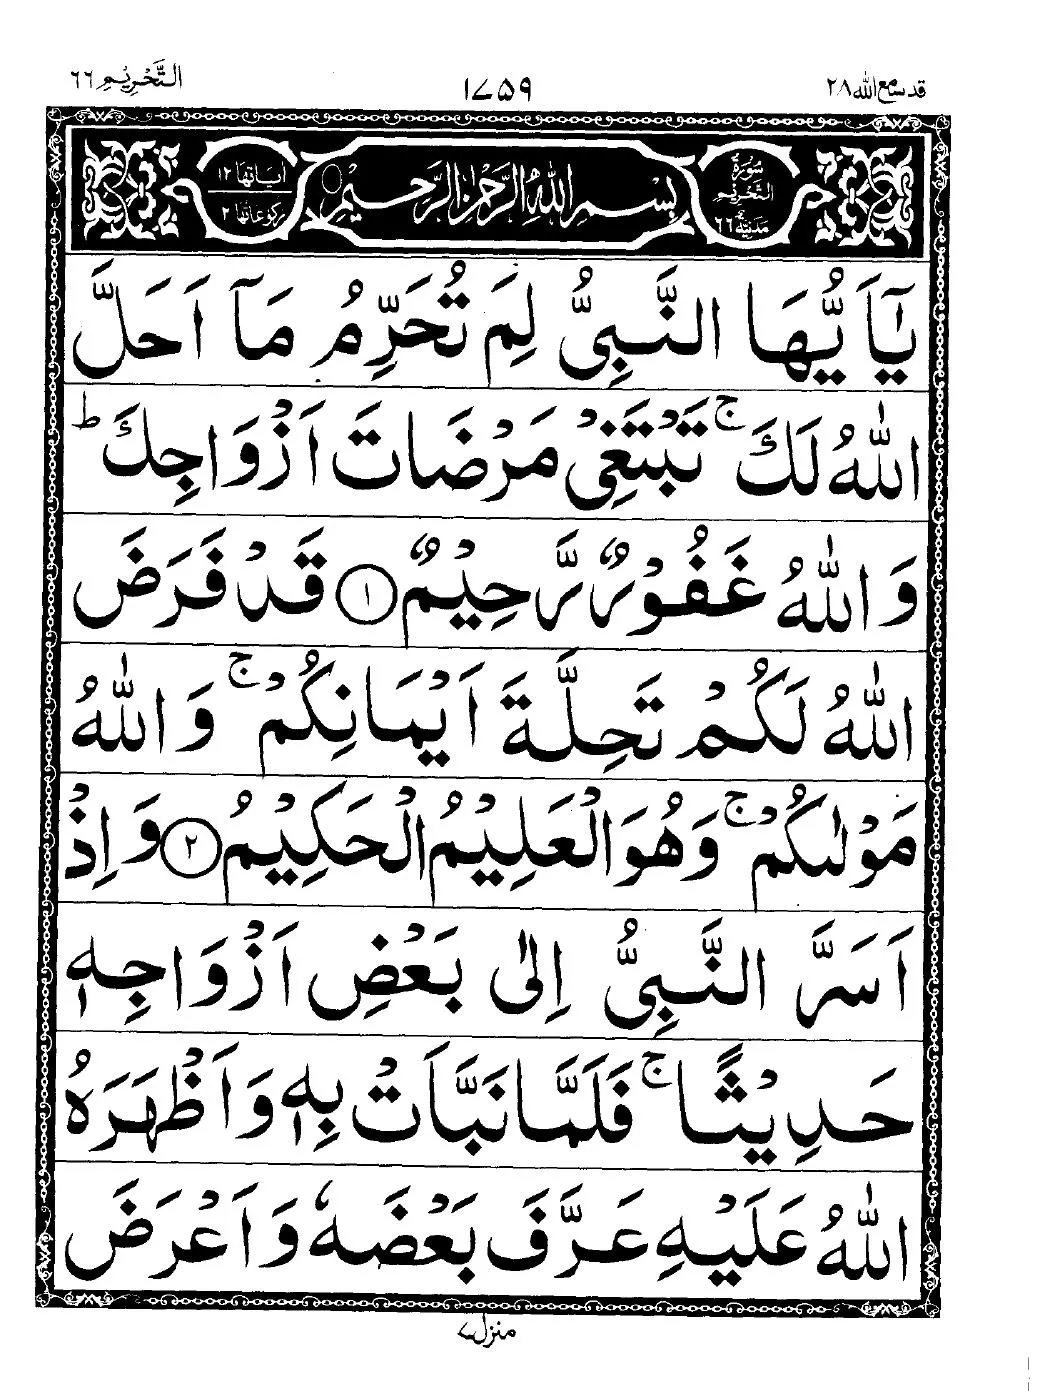 قد سمع الله ٢٨
١٧٥٩
التَّحْرِيْمِ ٦٦
سُوْرَةُ التَّحْرِيْمِ مَدَنِيَّةٌ ٦٦
بِسْمِ اللّٰهِ الرَّحْمٰنِ الرَّحِيْمِ
اٰيَاتُهَا ١٢
رُكُوْعَاتُهَا ٢
يٰۤاَيُّهَا النَّبِىُّ لِمَ تُحَرِّمُ مَاۤ اَحَلَّ
اللّٰهُ لَكَ ۚ تَبْتَغِىْ مَرْضَاتَ اَزْوَاجِكَ ؕ
وَاللّٰهُ غَفُوْرٌ رَّحِيْمٌ ﴿١﴾ قَدْ فَرَضَ
اللّٰهُ لَكُمْ تَحِلَّةَ اَيْمَانِكُمْ ۚ وَاللّٰهُ
مَوْلٰىكُمْ ۚ وَهُوَ الْعَلِيْمُ الْحَكِيْمُ ﴿٢﴾ وَاِذْ
اَسَرَّ النَّبِىُّ اِلٰى بَعْضِ اَزْوَاجِهٖ
حَدِيْثًا ۚ فَلَمَّا نَبَّاَتْ بِهٖ وَاَظْهَرَهُ
اللّٰهُ عَلَيْهِ عَرَّفَ بَعْضَهٗ وَاَعْرَضَ
منزل ٧